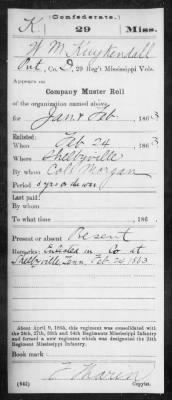 (Confederate.)
K 29 Miss.
W M Kuykendall
Pvt, Co. I, 29 Reg't Mississippi Vols.
Appears on
Company Muster Roll
of the organization named above,
for Jan & Feb, 1863
Enlisted:
When Feb 24, 1863
Where Shelbyville
By whom Col. Morgan
Period 3 yrs or the war
Last paid:
By whom
To what time , 186 .
Present or absent Present
Remarks: Enlisted in Co at
Shelbyville Tenn. Feb 24 1863
About April 9, 1865, this regiment was consolidated with
the 24th, 27th, 30th and 34th Regiments Mississippi Infantry
and formed a new regiment which was designated the 24th
Regiment Mississippi Infantry.
Book mark:
(642) Copyist.